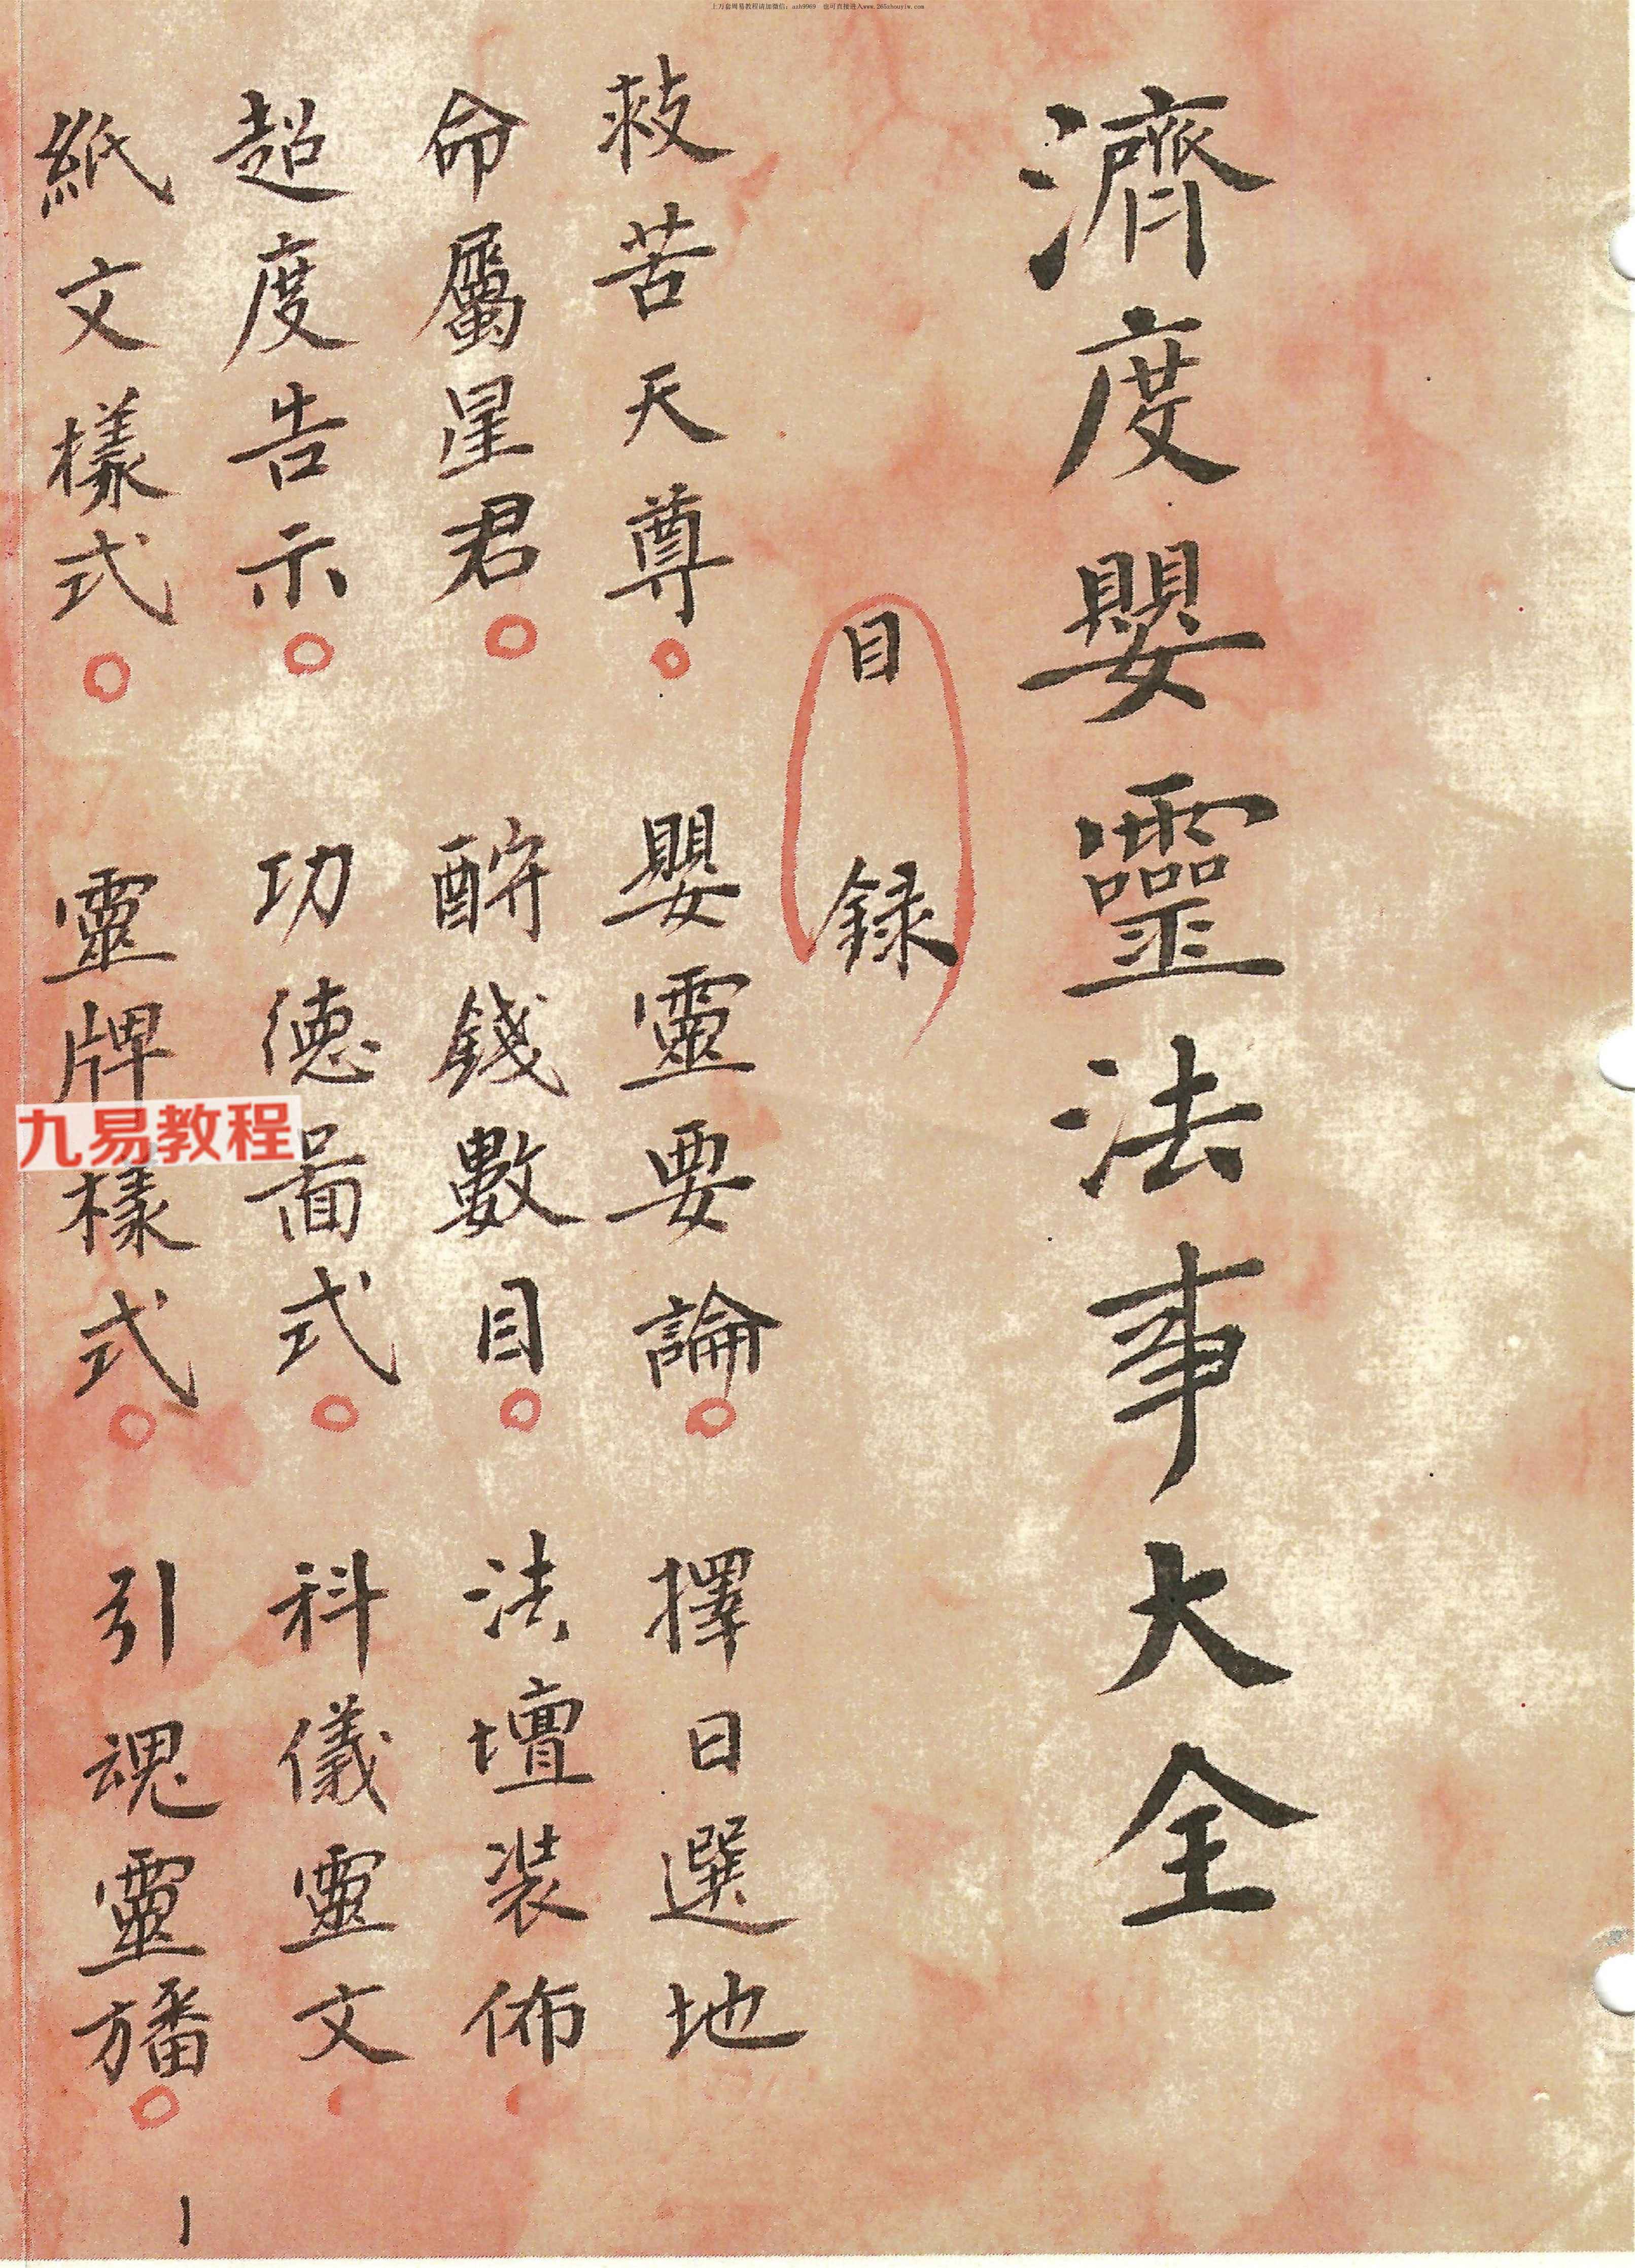 上万套周易教程请加微信：azh9969　也可直接进入www.265zhouyiw.com
濟度嬰靈法事大全
目錄
救苦天尊。嬰靈要論。擇日選地
命屬星君。酧錢數目。法壇装佈、
超度告示。功德啚式。科儀靈文、
紙文樣式。靈牌樣式。引魂靈旛。
1
九易教程